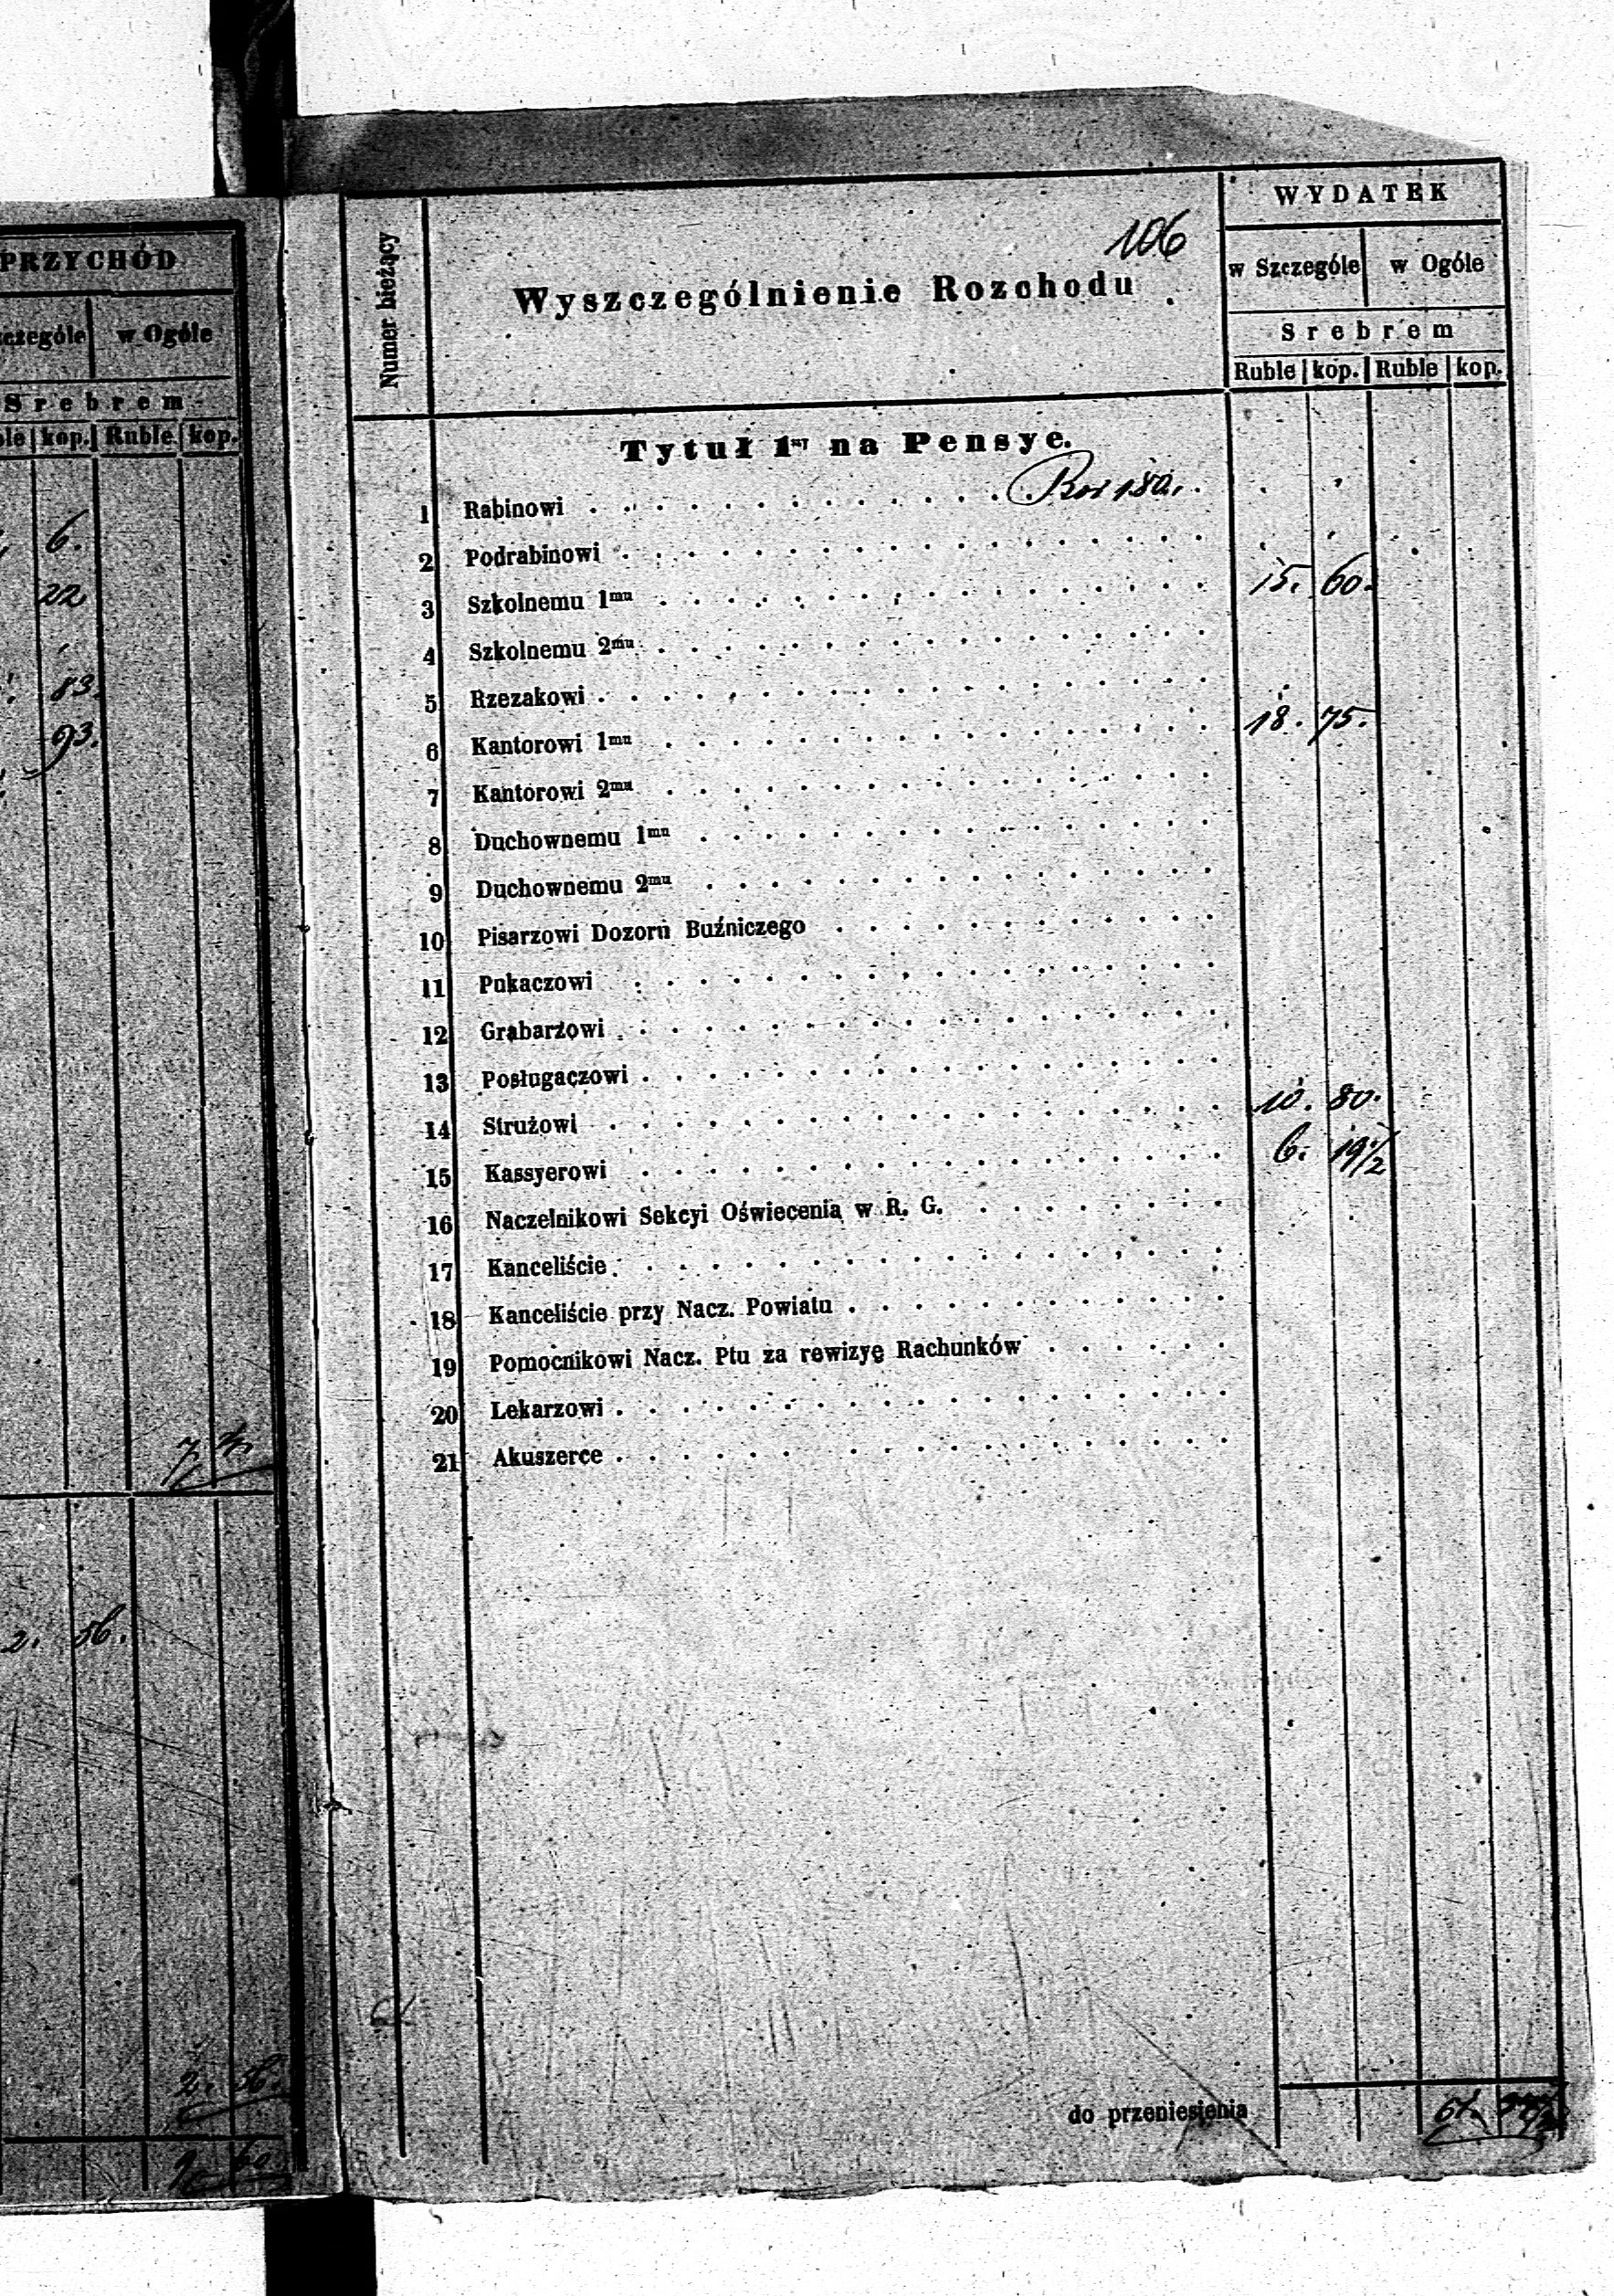 PRZYCHÓD
w Ogóle
Srebrem
kop. Ruble kop.
6.
22
83.
93.
2. 56.
2. 56.
106
Numer bieżący
Wyszczególnienie Rozchodu
WYDATEK
w Szczególe w Ogóle
Srebrem
Ruble kop. Ruble kop.
Tytuł 1ny na Pensye.
1 Rabinowi 180.
2 Podrabinowi
3 Szkolnemu 1mu 15. 60.
4 Szkolnemu 2mu
5 Rzezakowi
6 Kantorowi 1mu 18. 75.
7 Kantorowi 2mu
8 Duchownemu 1mu
9 Duchownemu 2mu
10 Pisarzowi Dozoru Buźniczego
11 Pukaczowi
12 Grabarzowi
13 Posługaczowi
14 Strużowi 10. 80.
15 Kassyerowi 6. 19½
16 Naczelnikowi Sekcyi Oświecenia w R. G.
17 Kanceliście
18 Kanceliście przy Nacz. Powiatu
19 Pomocnikowi Nacz. Ptu za rewizyę Rachunków
20 Lekarzowi
21 Akuszerce
do przeniesienia